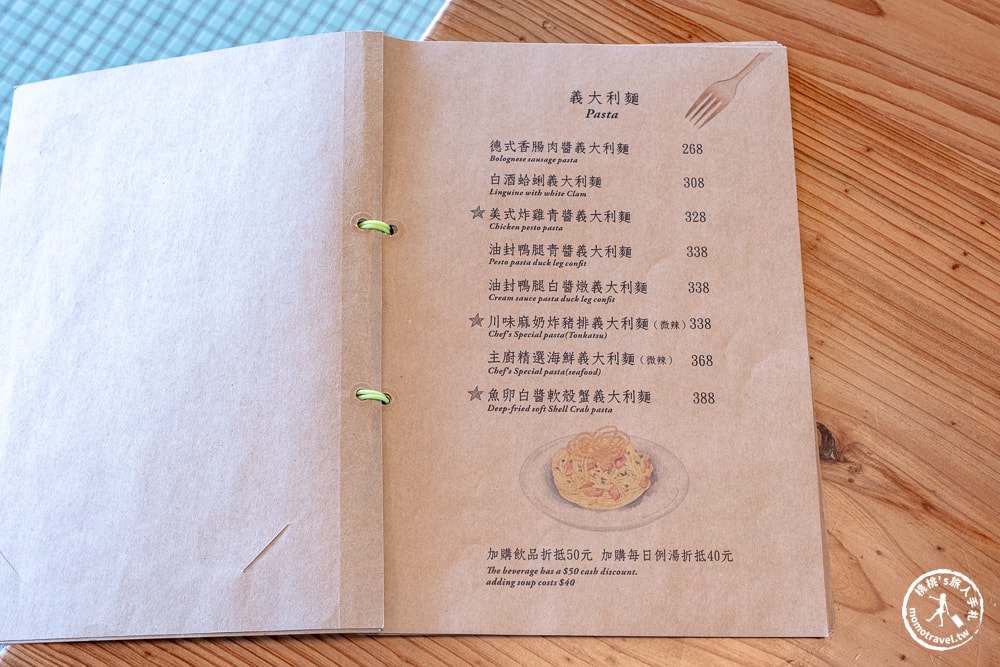 義大利麵
Pasta
德式香腸肉醬義大利麵 268
Bolognese sausage pasta
白酒蛤蜊義大利麵 308
Linguine with white Clam
美式炸雞青醬義大利麵 328
Chicken pesto pasta
油封鴨腿青醬義大利麵 338
Pesto pasta duck leg confit
油封鴨腿白醬燉義大利麵 338
Cream sauce pasta duck leg confit
川味麻奶炸豬排義大利麵(微辣) 338
Chef's Special pasta(Tonkatsu)
主廚精選海鮮義大利麵(微辣) 368
Chef's Special pasta(seafood)
魚卵白醬軟殼蟹義大利麵 388
Deep-fried soft Shell Crab pasta
加購飲品折抵50元 加購每日例湯折抵40元
The beverage has a $50 cash discount.
adding soup costs $40
桃桃's旅人手札
momotravel.tw